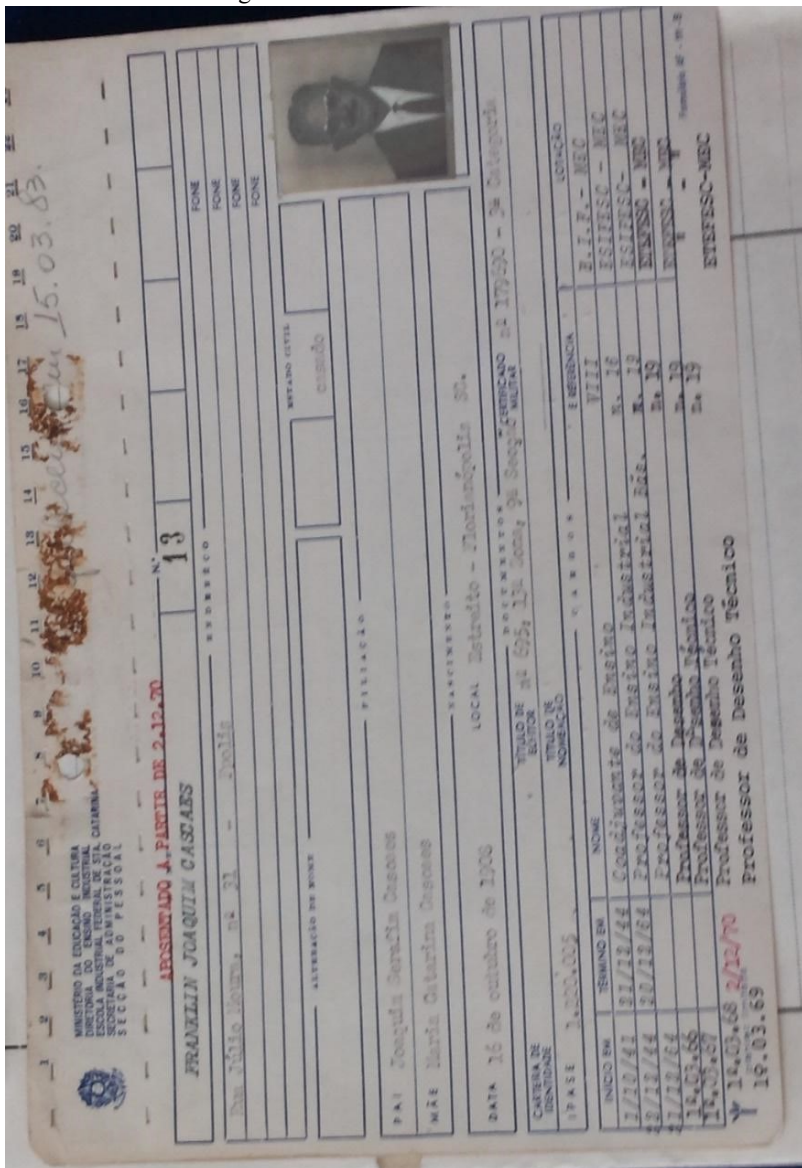 1 2 3 4 5 6 7 8 9 10 11 12 13 14 15 16 17 18 19 20 21 22
MINISTÉRIO DA EDUCAÇÃO E CULTURA
DIRETORIA DO ENSINO INDUSTRIAL
ESCOLA INDUSTRIAL FEDERAL DE STA. CATARINA
SECRETARIA DE ADMINISTRAÇÃO
SECÇÃO DO PESSOAL
em 15.03.83.
APOSENTADO A PARTIR DE 2.12.70
N.º
FRANKLIN JOAQUIM CASCAES 13
ENDEREÇO
Rua Júlio Moura, nº 31 - Fpolis FONE
FONE
FONE
FONE
ALTERAÇÃO DE NOME ESTADO CIVIL
casado
FILIAÇÃO
PAI Joaquim Serafim Cascaes
MÃE Maria Catarina Cascaes
NASCIMENTO
DATA 16 de outubro de 1908 LOCAL Estreito - Florianópolis SC.
DOCUMENTOS
CARTEIRA DE IDENTIDADE TÍTULO DE ELEITOR nº 695, 13ª Zona, 9ª Secção CERTIFICADO MILITAR nº 179490 - 3ª Categoria
IPASE 1.220.005 TÍTULO DE NOMEAÇÃO
CARGOS
INÍCIO EM TÉRMINO EM NOME E REFERÊNCIA LOTAÇÃO
1/10/41 21/12/44 Coadjuvante de Ensino VIII E.I.F.- MEC
22/12/44 20/12/64 Professor do Ensino Industrial n. 16 ESIFESC - MEC
21/12/64 Professor do Ensino Industrial Bás. n. 19 ESIFESC- MEC
1º.03.66 Professor de Desenho n. 19 ETEFESC - MEC
1º.03.67 Professor de Desenho Técnico n. 19 ETEFESC - MEC
1º.03.68 2/12/70 Professor de Desenho Técnico n. 19 " - "
1º.03.69 Professor de Desenho Técnico ETEFESC-MEC